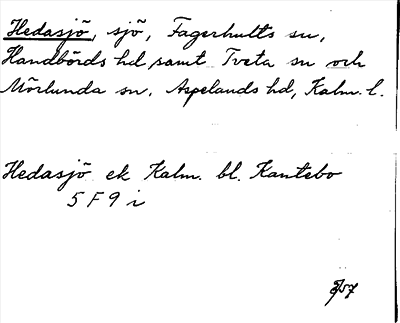 Hedasjö, sjö, Fagerhults sn,
Handbörds hd samt Tveta sn och
Mörlunda sn, Aspelands hd, Kalm. l.
Hedasjö ek Kalm. bl. Kantebo
5 F 9 i